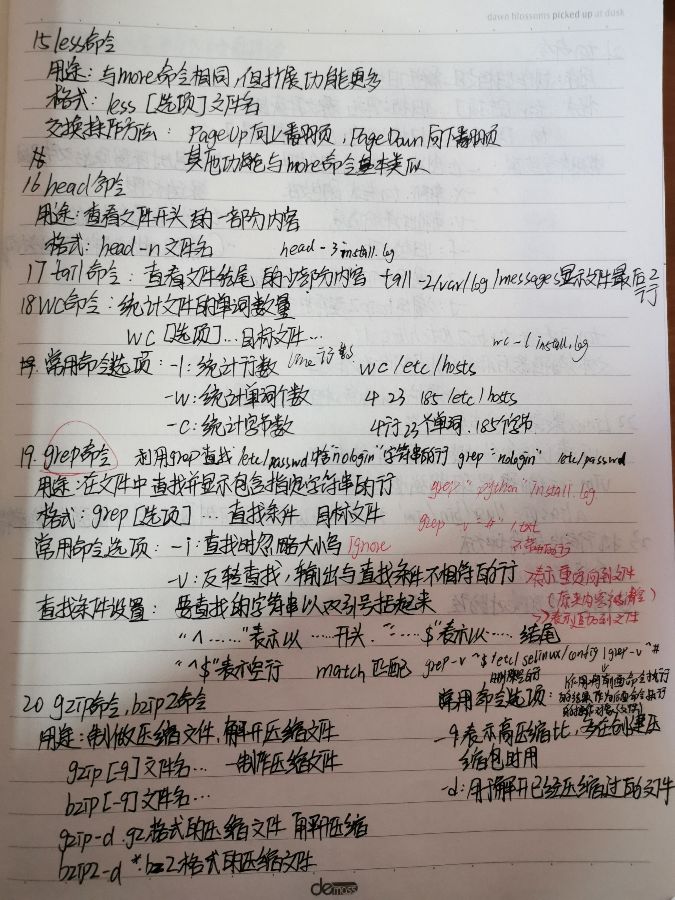 dawn blossoms picked up at dusk
15 less命令
用途：与more命令相同，但扩展功能更多
格式：less [选项] 文件名
交换操作方法：PageUp向上翻页，PageDown向下翻页
其他功能与more命令基本类似
16 head命令
用途：查看文件开头的一部分内容
格式：head -n 文件名 head -3 install.log
17 tail命令：查看文件结尾的少部分内容 tail -2 /var/log/messages显示文件最后2行
18 wc命令：统计文件的单词数量
wc [选项]... 目标文件... wc -l install.log
常用命令选项：-l：统计行数 line 行数 wc /etc/hosts
-w：统计单词个数 4 23 185 /etc/hosts
-c：统计字节数 4行23个单词，185个字节
19. grep命令 利用grep查找/etc/passwd中含"nologin"字符串的行 grep "nologin" /etc/passwd
用途：在文件中查找并显示包含指定字符串的行 grep "python" install.log
格式：grep [选项] ... 查找条件 目标文件 grep -v "#" 1.txt
常用命令选项：-i：查找时忽略大小写 Ignore
-v：反转查找，输出与查找条件不相符的行 >表示重定向到文件
(原来内容被清空)
查找条件设置：要查找的字符串以双引号括起来 >>表示追加到文件
"^……"表示以……开头，"……$"表示以……结尾
"^$"表示空行 match 匹配 grep -v "^$" /etc/selinux/config | grep -v "^#
20 gzip命令，bzip2命令 常用命令选项：
用途：制做压缩文件，解开压缩文件 -9表示高压缩比，多在创建压
缩包时用
gzip [-9] 文件名... —制作压缩文件
bzip [-9] 文件名... -d：用于解开已经压缩过的文件
gzip -d .gz格式的压缩文件 解开压缩
bzip2 -d *.bz2格式的压缩文件
demass